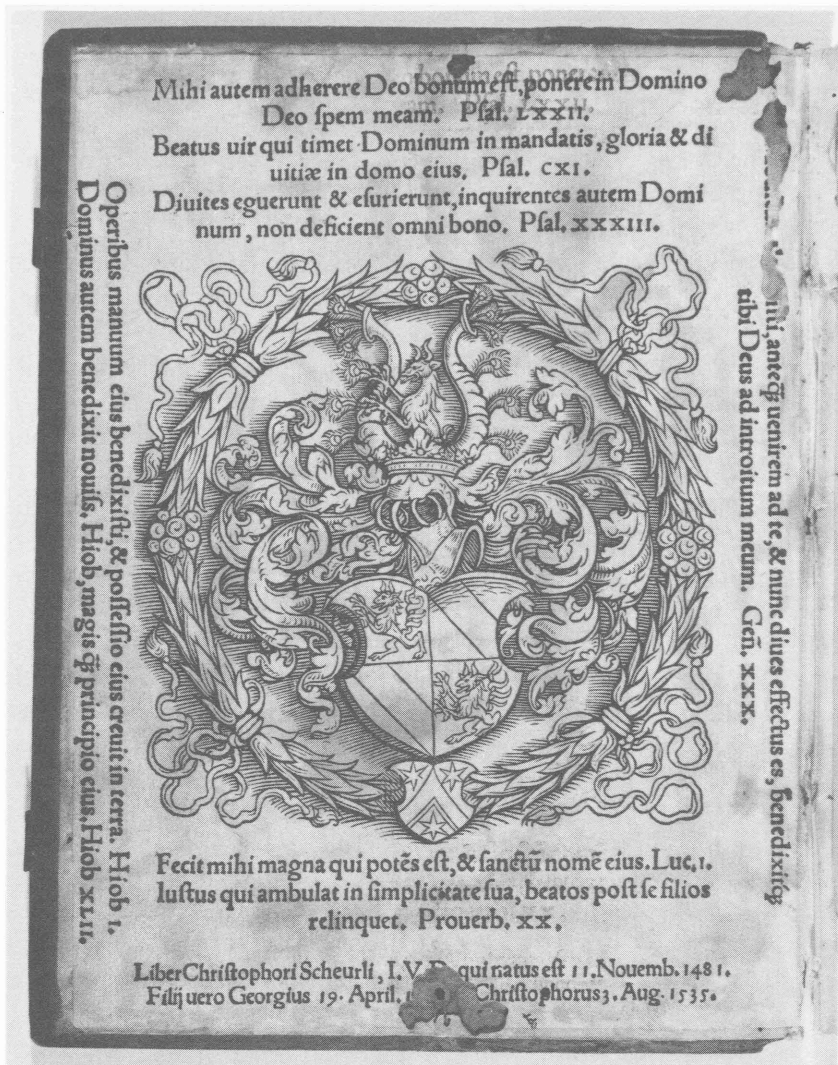 Mihi autem adherere Deo bonum eſt, ponere in Domino
Deo ſpem meam. Pſal. LXXII.
Beatus uir qui timet Dominum in mandatis, gloria & di
uitiæ in domo eius. Pſal. CXI.
Diuites eguerunt & eſurierunt, inquirentes autem Domi
num, non deficient omni bono. Pſal. XXXIII.
Operibus manuum eius benedixiſti, & poſſeſſio eius creuit in terra. Hiob I.
Dominus autem benedixit nouiſs. Hiob, magis q̃ꝫ principio eius. Hiob XLII.
anteq̃ꝫ uenirem ad te, & nunc diues effectus es, benedixitq́ꝫ
tibi Deus ad introitum meum. Geñ. XXX.
Fecit mihi magna qui potẽs eſt, & ſanctũ nomẽ eius. Luc. 1.
Iuſtus qui ambulat in ſimplicitate ſua, beatos poſt ſe filios
relinquet. Prouerb. XX.
Liber Chriſtophori Scheurli, I. V. D. qui natus eſt 11. Nouemb. 1481.
Filij uero Georgius 19. April. Chriſtophorus 3. Aug. 1535.